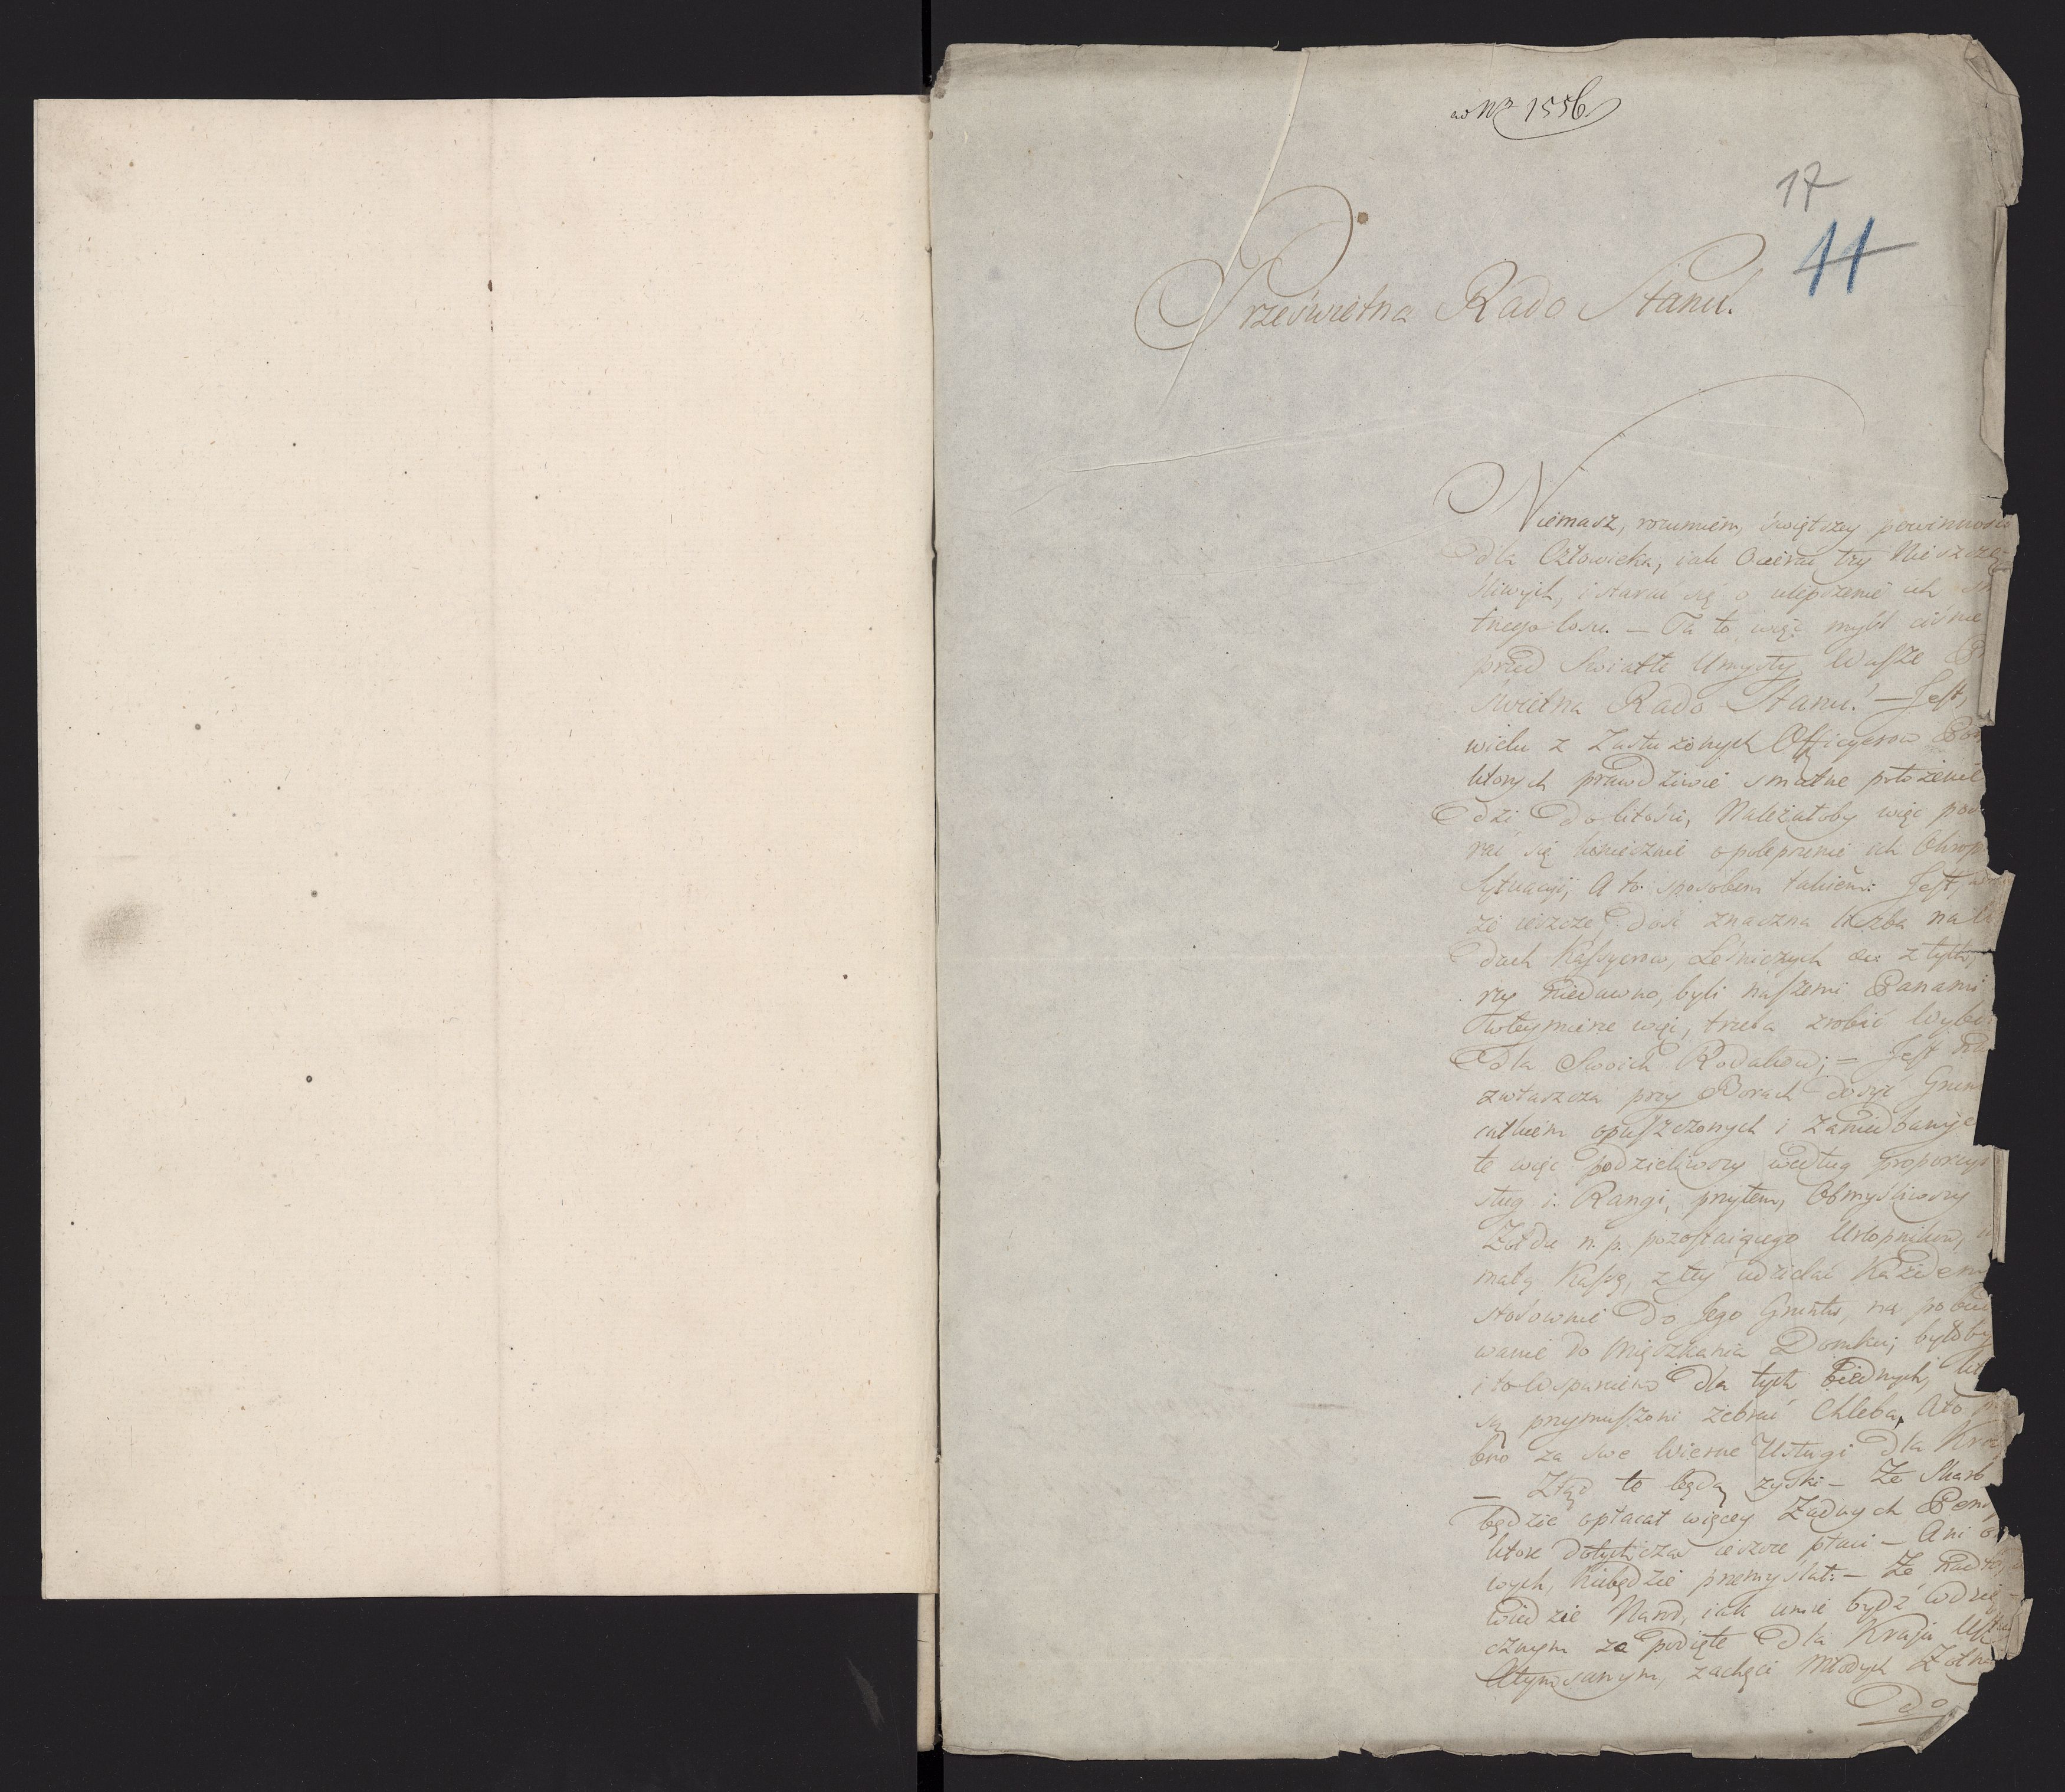 ad Nr 1556
17
11
Prześwietna Rado Stanu!
Niemasz, rozumiem, świętszey powinności
dla Człowieka, iak Ocierać łzy Nieszczę-
śliwych, i starać się o ulepszenie ich
tnego losu. — Ta to więc myśl ciśnie
przed Swiatłe Umysły Wasze
świetna Rado Stanu! — Jest,
wielu z Zasłużonych Officyerow
ktorych prawdziwie smutne położenie
dzi do litości, Należałoby więc
rać się koniecznie o polepszenie ich
Sytuacyi, A to sposobem takiem: Jest,
że ieszcze dość znaczna liczba na
dach Kassyerow, Leśniczych &c z tych,
rzy niedawno, byli naszemi Panami
więc, trzeba zrobić
dla Swoich Rodakow; = Jest
zwłaszcza przy Borach dosyć
całkiem opuszczonych i zaniedbanych
te więc podzieliwszy według proporcyi
sług i Rangi, przytem, Obmyśliwszy
Żołdu n. p. pozostaiącego Urlopnikow,
małą Kassę, z tey udzielać Każdem
stosownie do Jego Gruntu, na
wanie do mięszkania Domku; byłoby
i to Wsparciem dla tych biednych,
są przymuszoni żebrać Chleba, A to
bno za swe Wierne Usługi dla
— Ztąd to będą zyski — Że Skarb
będzie opłacał więcey Żadnych
ktore dotychczas ieszcze płaci — Ani
wych, niebędzie przemyślał: — Że
wiedzie Narod, iak umie bydź wdzię-
cznym za podięte dla Kraju
Atym samym, zachęci Młodych
Do